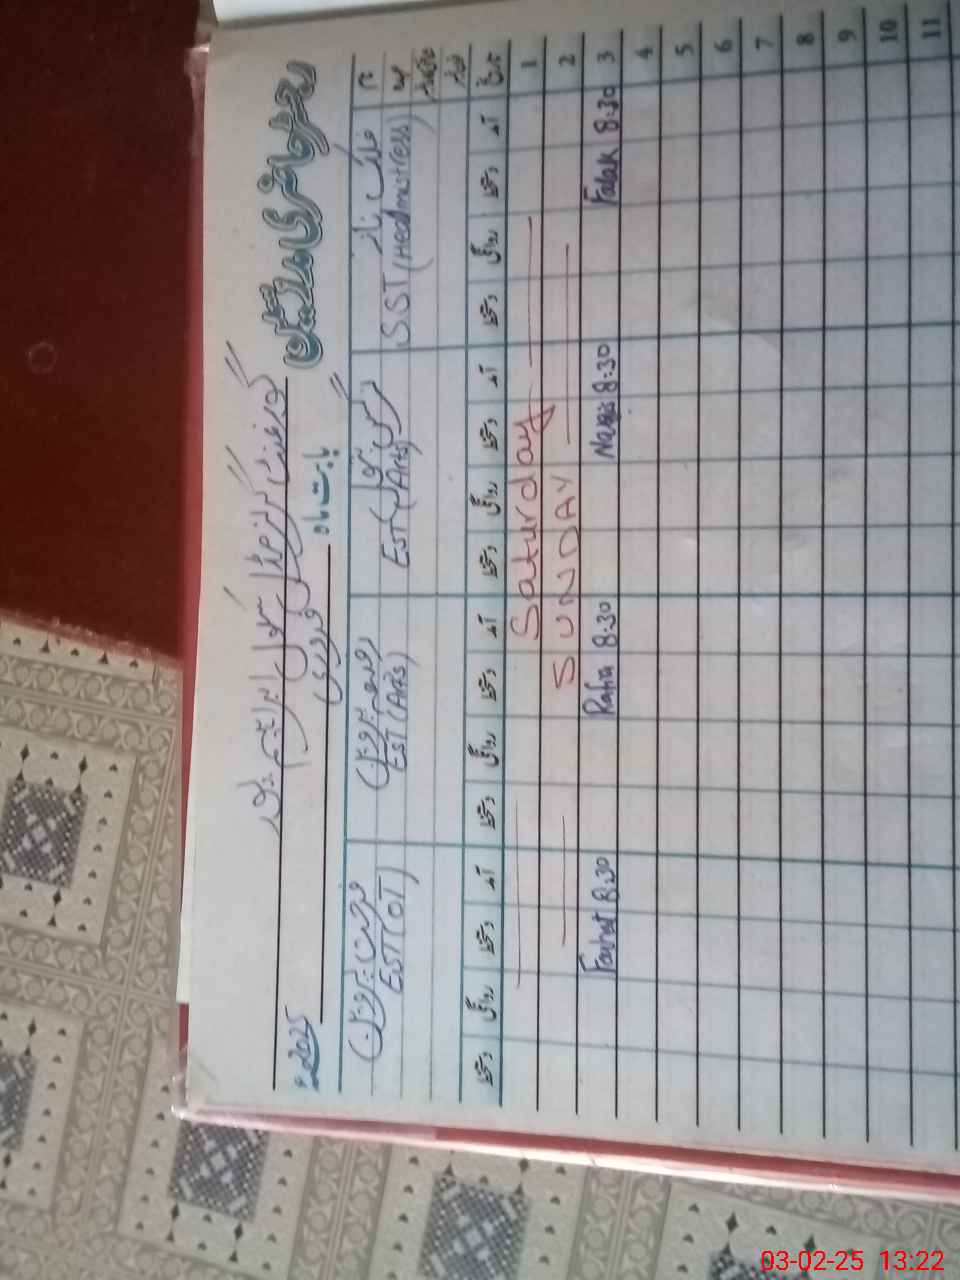 رجسٹر حاضری مدرسین گورنمنٹ گرلز مڈل سکول ابراہیم
بابت ماہ فروری 2025ء
نام فلک ناز نرگس رفیعہ پروین فرحت پروین
عہدہ SST (Headmistress) EST (Arts) EST (Arts) EST (OT)
تاریخ آمد دستخط روانگی دستخط آمد دستخط روانگی دستخط آمد دستخط روانگی دستخط آمد دستخط روانگی دستخط
1 Saturday
2 SUNDAY
3 Falak 8:30 Nargis 8:30 Rafia 8:30 Farhat 8:30
4
5
6
7
8
9
10
11
03-02-25 13:22